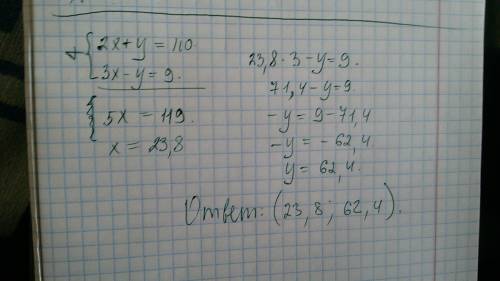 2x+y=110.
3x-y=9.
5x=119.
x=23,8
23,8·3-y=9.
71,4-y=9.
-y=9-71,4
-y=-62,4.
y=62,4.
Ответ: (23,8; 62,4).